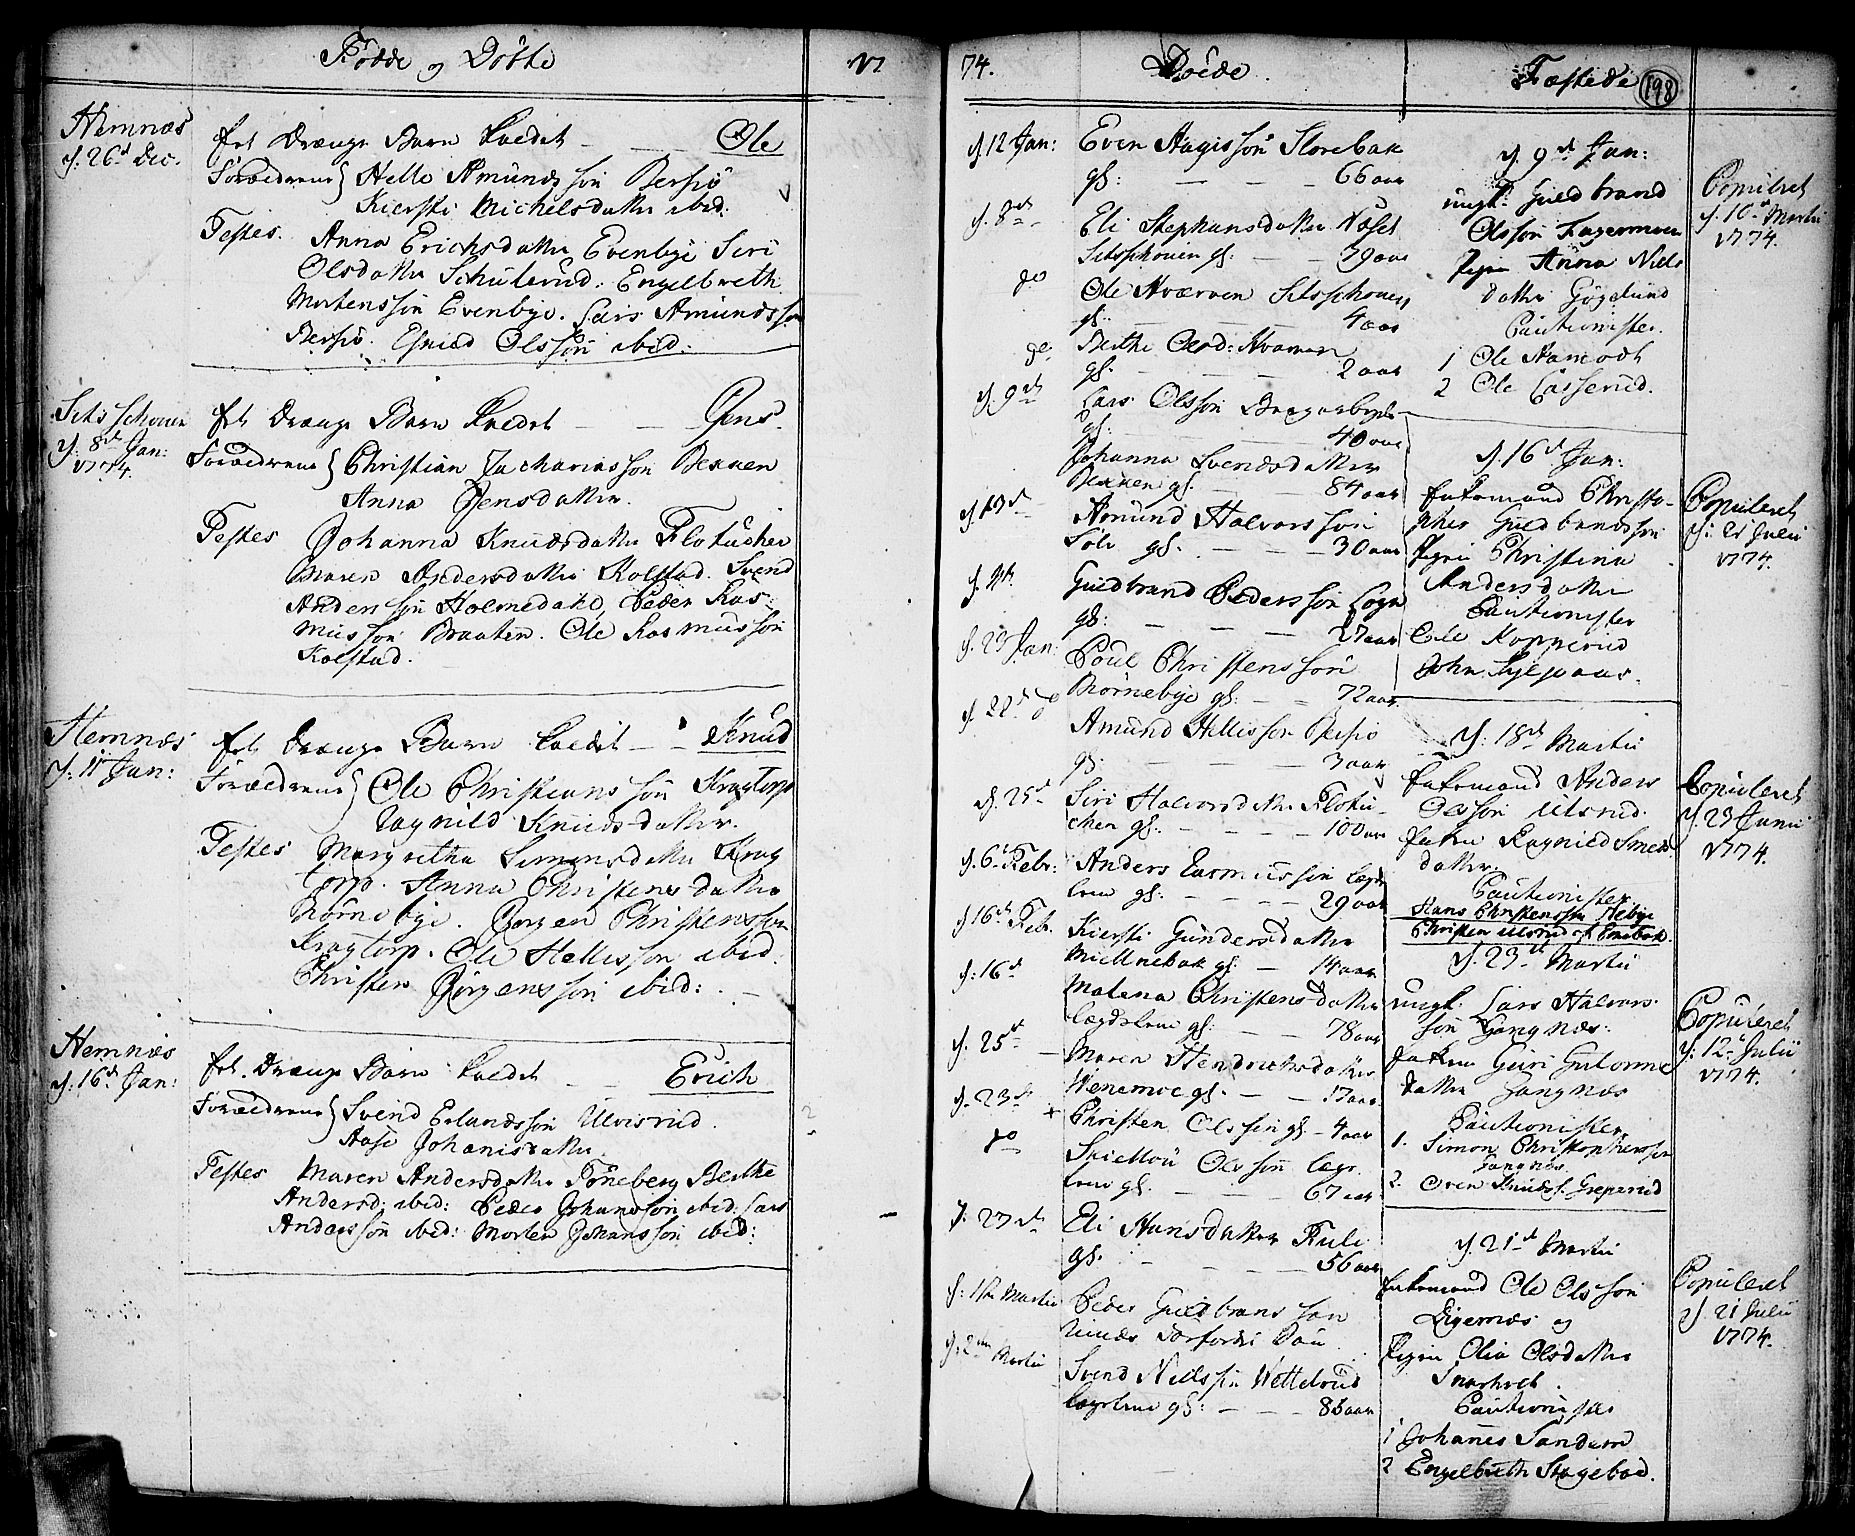 Fødde og Døbte
17
Hemnæs
d. 26d Dec.
frt Drænge Barn kaldet - - Ole
Forældrene Helle Amundsson Bersiø
Kiersti Michelsdatter ibid:
Testes. Anna Erichsdatter Evenbye Siri
Olsdatter Schulerud. Engelbreth
Mortenssøn Evenbye. Lars Amundssøn
Bersiø. Olssøn ibid:
Sitsschouen
d. 8d Jan:
1774.
frt Drænge Barn kaldet - - Jens
Forældrene Christian Zachariassøn Bekken
Anna Jensdatter.
Testes Johanna Knudsdatter Flotucher
Maren Andersdatter Kolstad. Svend
Anderssøn Holmedahl, Peder Ras-
mussøn Braaten. Ole Rasmussøn
Kolstad.
Hemnæs
d. 11 Jan:
frt Drænge Barn kaldet - - Knud
Forældrene Ole Christianssøn Kragtorp
Ragnild Knudsdatter.
Testes Margretha Simensdatter Krag
torp. Anna Christensdatter
Børnebye. Jørgen Christenssøn
Kragtorp. Ole Hellissøn ibid:
Christen Jørgenssøn ibid:
Hemnæs
d. 16d Jan:
frt. Drænge Barn kaldet - - Erich
Forældrene Svend Erlandssøn Ulvisrud.
Aase Johanisdatter
Testes Maren Andersdatter Toneberg Berthe
Andersd: ibid: Peder Johanssøn ibid: Lars
Anderssøn ibid: Morten Johanssøn ibid:
74.
Døde.
d. 12 Jan: Even Aagissøn Storebak
gl: - - - 66 aar
d. 8d Eli Stephansdatter Næset
Sitsschouen gl: - - 79 aar
do Ole Kværven Sitsschouen
gl: 4 aar
do Berthe Olsd: Kvarven
gl: - - - 2 aar
d. 9d Lars Olssøn
gl: - - - 40 aar
Johanna Svendsdatter
Bekken gl. - - 84 aar
d. 13d Amund Halvorssøn
Sole gl. - - - 30 aar
Guldbrand Pederssøn
gl: - - - 27 aar
d. 23 Jan: Poul Christenssøn
Børnebye gl: - - 72 aar
d. 22d do Amund Hellissøn Bersiø
gl: - - - 3 aar
d. 25d Siri Halvorsdatter Flotu
chen gl: - - - 100 aar
d. 6d Febr: Anders Rasmussøn Lægds
lem gl: - - - 29 aar
d. 16d Febr. Kiersti Gundersdatter
Miellnebak gl: - 14 aar
d. 16d Malena Christensdatter
Lægdslem gl: - 78 aar
d. 25d Maren Hendrichsdatter
Henemoe gl: - - 17 aar
d. 23d + Christen Olssøn gl - 4 aar
do Olssøn Læg.
lem gl: - - - 67 aar
d. 27d Eli Hansdatter Rule
gl: - - - 56 aar
d. 1te Martii Peder Guldbranssøn
d. 2den Martii
Svend Nielssøn Wettelsrud
Lægslem gl: - - - 86 aar
Fæstede
198
d. 9d Jan:
ungk: Guldbrand
Olssøn Fagermoen
Pigen Anna Niels
datter
Cautionister.
1 Ole
2 Ole
Copuleret
d. 10d Martii
1774.
d. 16d Jan:
Enkemand Christo-
pher Guldbrandssøn
Pigen Christina
Andersdatter
Cautionister
Ole Kopperud
John
Copuleret
d. 21 Julii
1774.
d. 18d Martii
Enkemand Anders
Olssøn Ulsrud.
Enken Ragnild Smeds
datter
Cautionister
Hans Christenssøn Nebye
Christen Ulsrud af Enebak.
Copuleret
d. 23 Junii
1774.
d. 23d Martii
ungk. Lars Halvors
søn Gangnæs:
Enken Guri Gulorme
datter Gangnæs
Cautionister
1. Simon Christophersøn
Gangnæs.
2. Oven Knuds. Greperud
Copuleret
d. 12d Julii
1774.
d. 21d Martii
Enkemand Ole Olssøn
Digernæs og
Pigen Olia Olsdatter
Snarhvet.
Cautionister
1 Johanes Sandem
2 Engelbreth Skogebøe.
Copuleret
d. 21 Julii
1774.